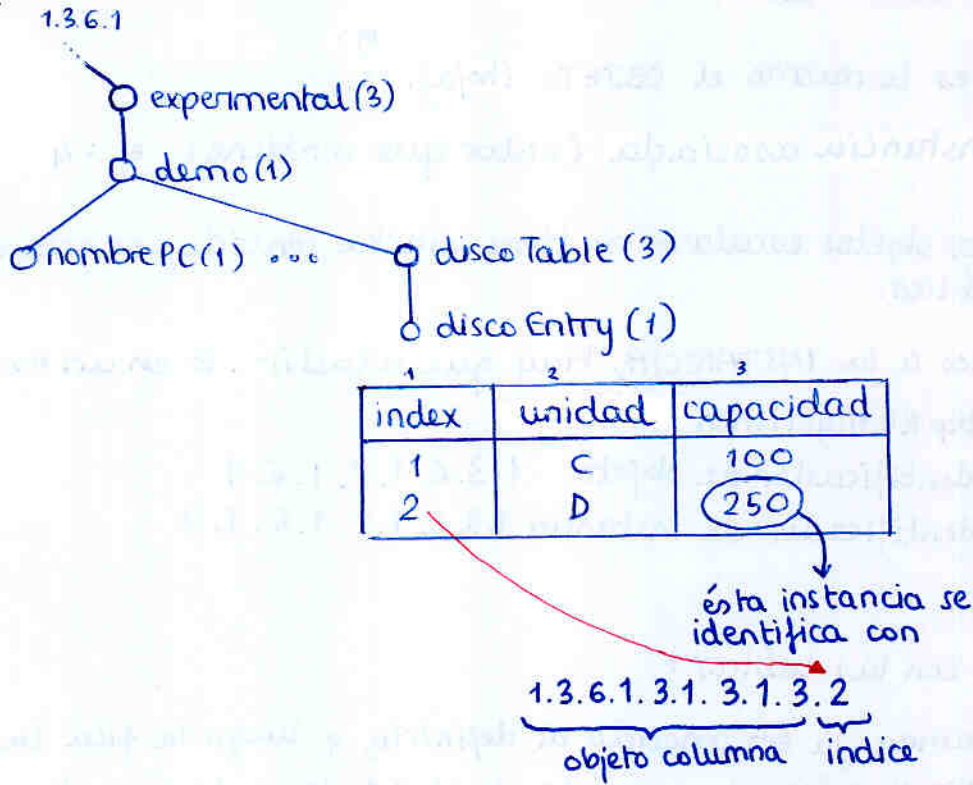 1.3.6.1
experimental (3)
demo (1)
nombre PC (1) ... disco Table (3)
disco Entry (1)
1 2 3
index unidad capacidad
1 C 100
2 D 250
ésta instancia se
identifica con
1.3.6.1.3.1.3.1.3.2
objeto columna índice